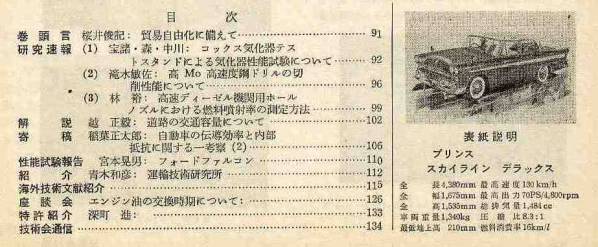 目 次
巻頭言 桜井俊記: 貿易自由化に備えて 91
研究速報 (1) 宝諸・森・中川: コックス気化器テス
トスタンドによる気化器性能試験について 92
(2) 滝水敏佐: 高 Mo 高速度鋼ドリルの切
削性能について 96
(3) 林 裕: 高速ディーゼル機関用ホール
ノズルにおける燃料噴射率の測定方法 99
解説 越 正毅: 道路の交通容量について 102
寄稿 稲葉正太郎: 自動車の伝導効率と内部
抵抗に関する一考察 (2) 106
性能試験報告 宮本晃男: フォードファルコン 110
紹介 青木和彦: 運輸技術研究所 112
海外技術文献紹介 115
座談会 エンジン油の交換時期について: 126
特許紹介 深町 進: 133
技術会通信 134
表紙説明
プリンス
スカイライン デラックス
全長 4,380mm 最高速度 130 km/h
全幅 1,675mm 最高出力 70PS/4,800rpm
全高 1,535mm 総排気量 1,484 cc
車両重量 1,340kg 圧縮比 8.3:1
最低地上高 210mm 燃料消費率 16km/l